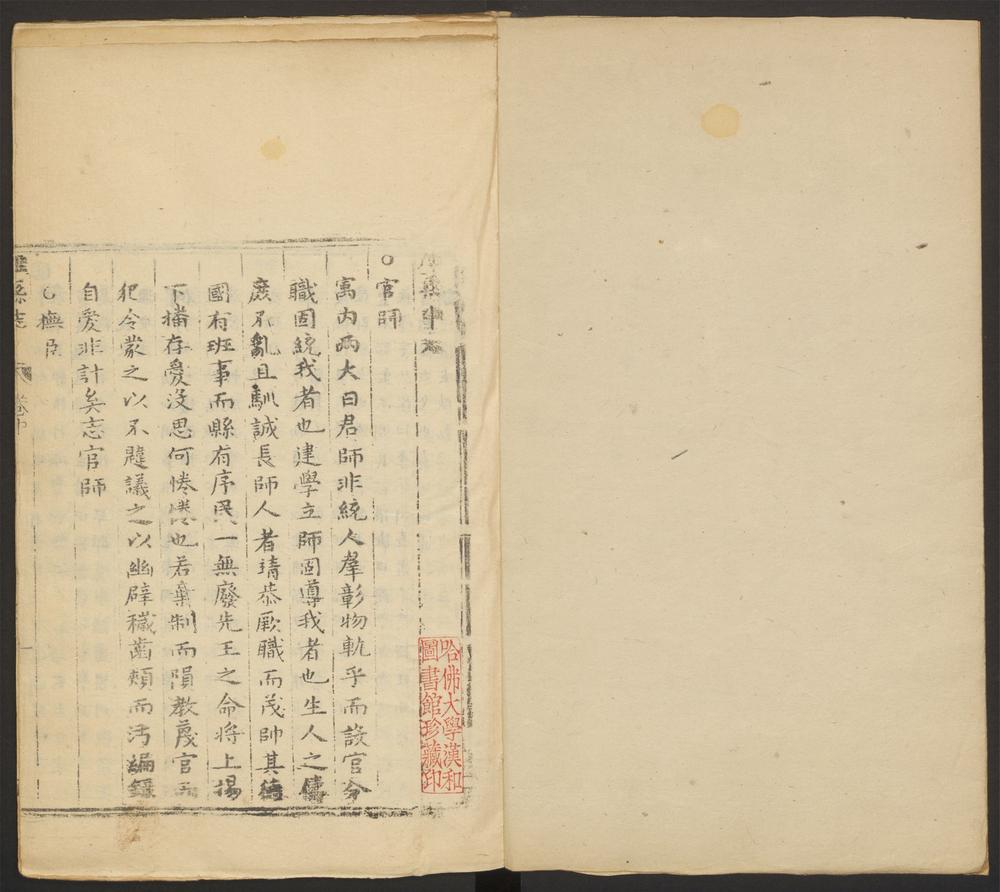 ○官師
寓內兩大曰君師非統人羣彰物軌乎而設官分
職固統我者也建學立師固導我者也生人之
庶不亂且馴誠長師人者靖恭厥職而茂帥其德
國有班事而縣有序民一無廢先王之命將上揚
下播存愛沒思何惓惓也若棄制而隕教蔑官而
犯令蒙之以不韙議之以幽辟穢齒頰而汚編錄
自愛非計矣志官師
○撫臣
縣志
卷中
一
哈佛大學漢和
圖書館珍藏印